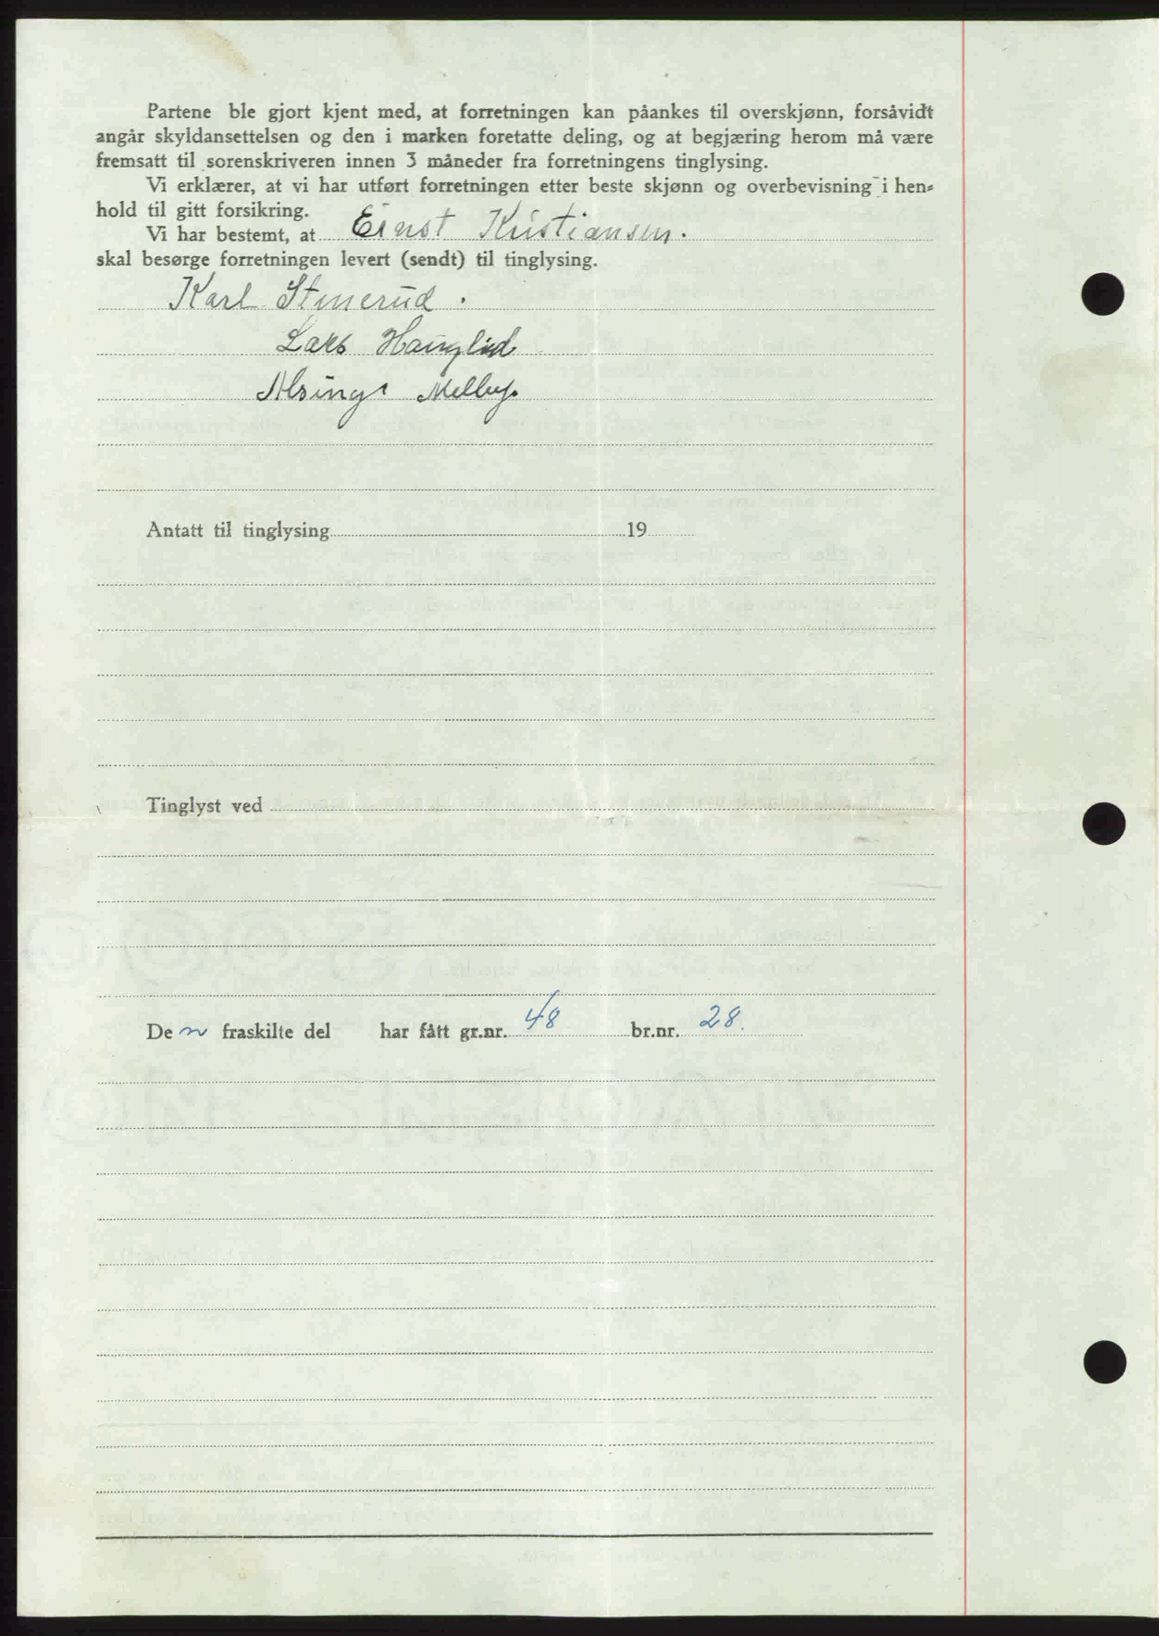 Partene ble gjort kjent med, at forretningen kan påankes til overskjønn, forsåvidt
angår skyldansettelsen og den i marken foretatte deling, og at begjæring herom må være
fremsatt til sorenskriveren innen 3 måneder fra forretningens tinglysing.
Vi erklærer, at vi har utført forretningen etter beste skjønn og overbevisning i hen-
hold til gitt forsikring.
Vi har bestemt, at Ernst Kristiansen.
skal besørge forretningen levert (sendt) til tinglysing.
Karl Stenerud.
Lars Hauglid
Melby.
Antatt til tinglysing 19
Tinglyst ved
De n fraskilte del har fått gr.nr. 48 br.nr. 28.